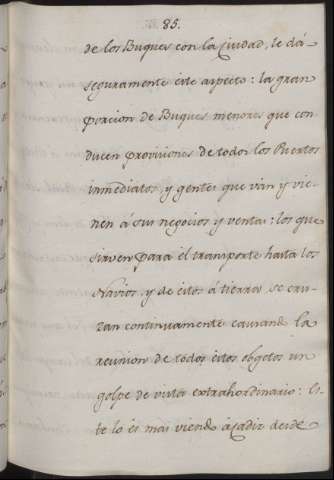 85.
de los Buques con la Ciudad, le dá
seguramente este aspecto: la gran
porcion de Buques menores que con
ducen provisiones de todos los Puertos
inmediatos, y gentes que van y vie-
nen á sus negocios y ventas: los que
sirven para el transporte hasta los
Navios, y de estos á tierra se cru-
zan continuamente causando la
reunion de todos estos obgetos un
golpe de vista extrahordinario: Es-
te lo es mas viendo á Cadiz desde